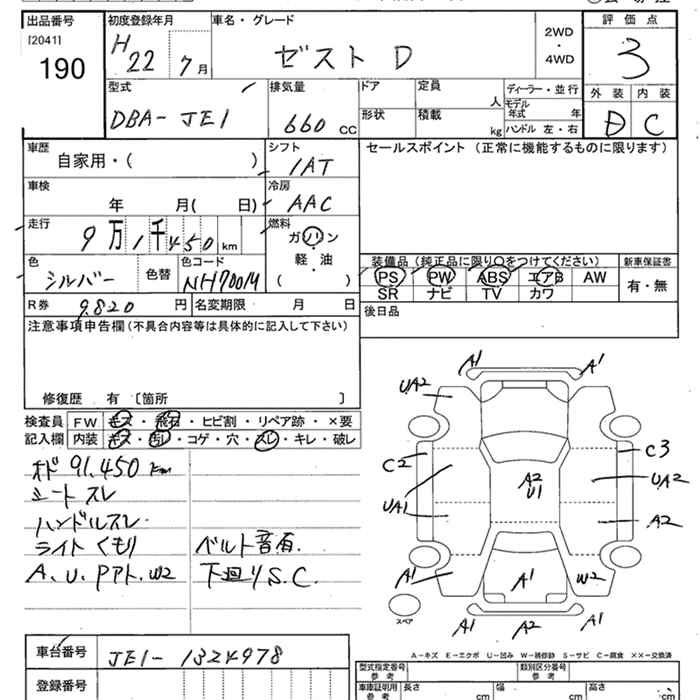 出品番号
[2041]
190
初度登録年月
H 22 7 月
車名・グレード
ゼスト D
2WD
・
4WD
評価点
3
外装 内装
D C
型式
DBA- JE1
排気量
660 cc
ドア
定員
人
形状
積載
kg
ディーラー・並行
モデル
年式 年
ハンドル 左・右
車歴
自家用・( )
シフト
IAT
セールスポイント (正常に機能するものに限ります)
車検
年 月( 日)
冷房
AAC
走行
9 万 1 千 450 km
燃料
ガソリン
・
軽・油
( )
色
シルバー
色替
色コード
NH700M
装備品 (純正品に限り○をつけてください)
PS PW ABS エアB AW
SR ナビ TV カワ
新車保証書
有・無
R券 9,820 円
名変期限 月 日
後日品
注意事項申告欄 (不具合内容等は具体的に記入して下さい)
修復歴 有 [箇所 ]
検査員
記入欄
FW キズ・飛石・ヒビ割・リペア跡・×要
内装 キズ・汚レ・コゲ・穴・スレ・キレ・破レ
オド 91,450 km
シート スレ
ハンドルスレ
ライト くもり
A、U、Pアト、W2
ベルト音有
下廻りS.C.
A1 A1
UA2
C2
C3
UA1
A2
U1
UA2
A2
A1
A1
W2
A1 A2 A1
スペア
A-キズ E-エクボ U-凹み W-補修跡 S-サビ C-腐食 ××-交換済
車台番号
JE1- 1324978
登録番号
型式指定番号
参考
類別区分番号
参考
車庫証明用
参考
長さ cm
幅 cm
高さ cm